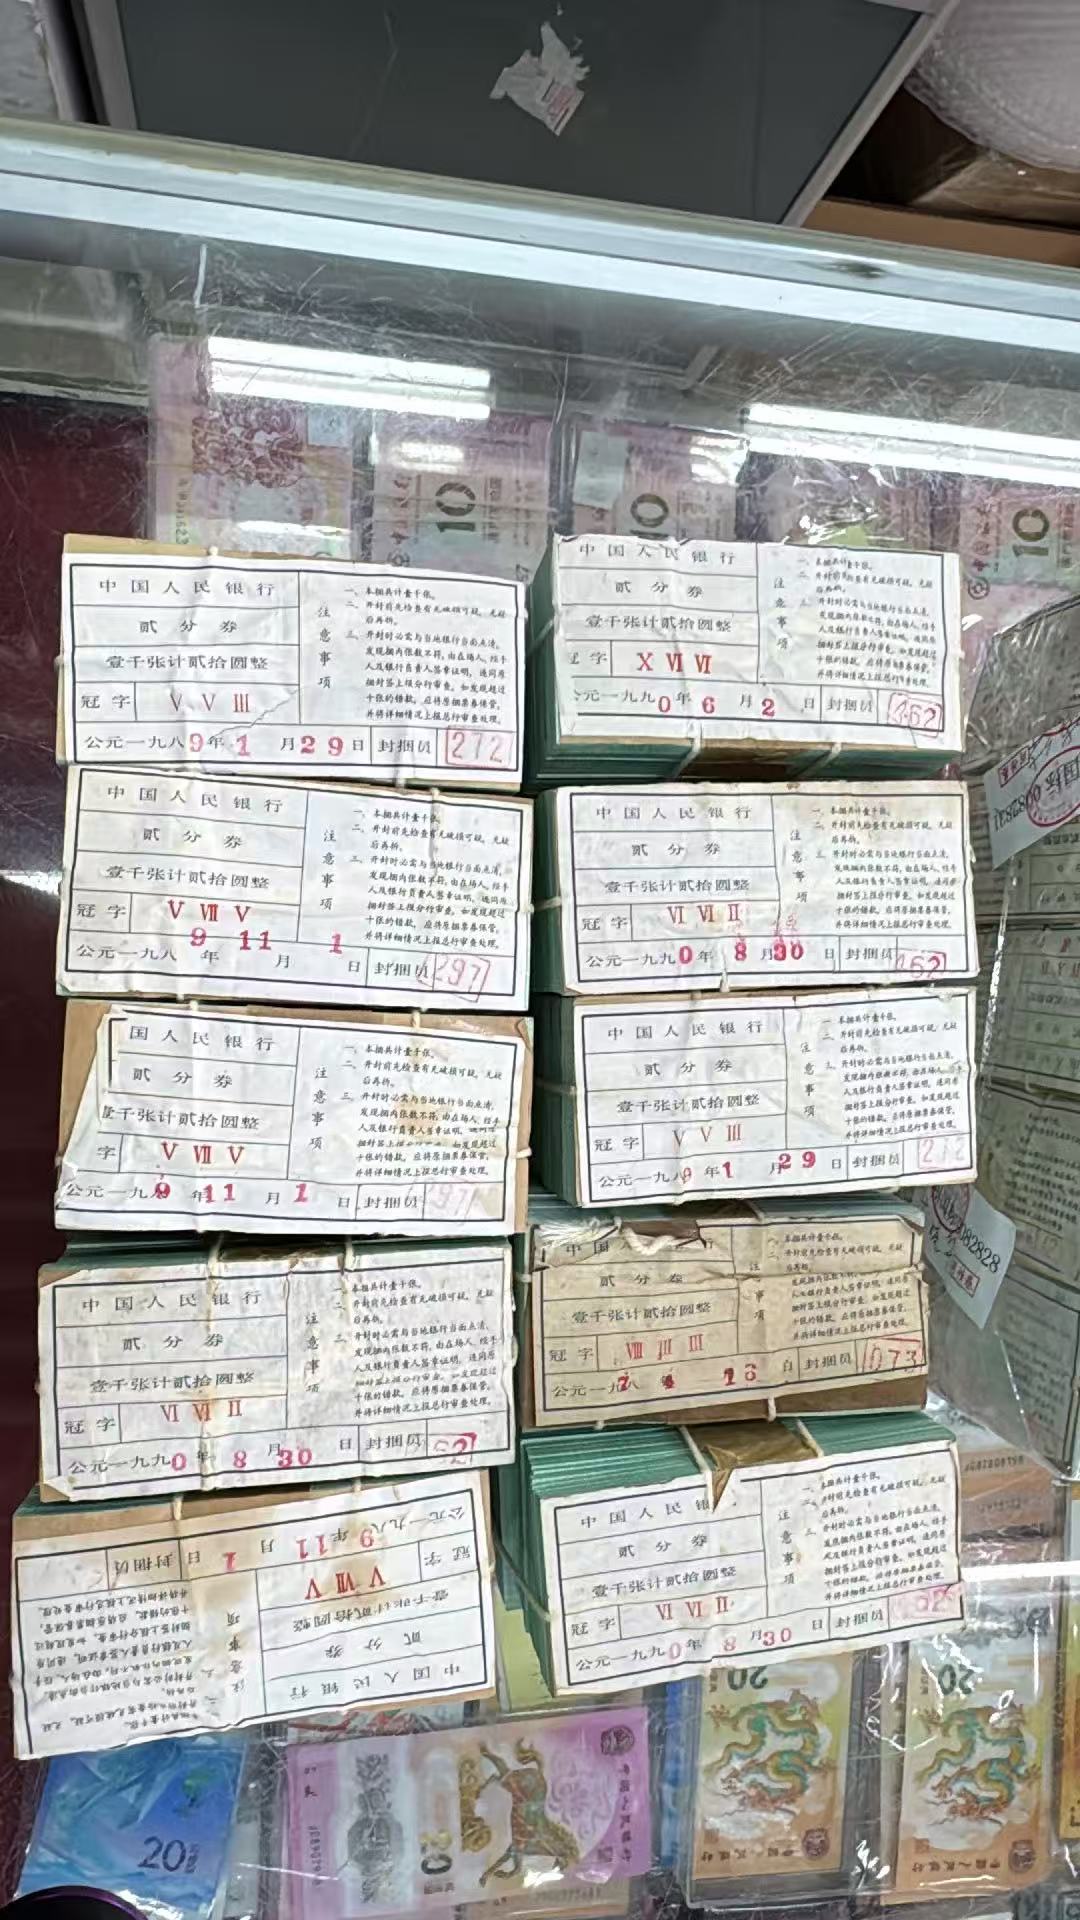 中国人民银行
贰分券
壹千张计贰拾圆整
冠字 V V III
公元一九八9年1月29日 封捆员 272
注意事项
一、本捆共计壹千张。
二、开封前先检查有无破损可疑，无疑
后再拆。
三、开封时必需与当地银行当面点清，
发现捆内张数不符，由在场人、经手
人及银行负责人签章证明，连同原
捆封签上报分行审查，如发现超过
十张的错款，应将原捆票券保管，
并将详细情况上报总行审查处理。
中国人民银行
贰分券
壹千张计贰拾圆整
字 X VI VI
公元一九九0年6月2日 封捆员 462
注意事项
一、本捆共计壹千张。
二、开封前先检查有无破损可疑，无疑
后再拆。
三、开封时必需与当地银行当面点清，
发现捆内张数不符，由在场人、经手
人及银行负责人签章证明，连同原
捆封签上报分行审查，如发现超过
十张的错款，应将原捆票券保管，
并将详细情况上报总行审查处理。
中国人民银行
贰分券
壹千张计贰拾圆整
冠字 V VII V
公元一九八9年11月1日 封捆员 297
注意事项
一、本捆共计壹千张。
二、开封前先检查有无破损可疑，无疑
后再拆。
三、开封时必需与当地银行当面点清，
发现捆内张数不符，由在场人、经手
人及银行负责人签章证明，连同原
捆封签上报分行审查，如发现超过
十张的错款，应将原捆票券保管，
并将详细情况上报总行审查处理。
中国人民银行
贰分券
壹千张计贰拾圆整
冠字 VI VI II
公元一九九0年8月30日 封捆员 462
注意事项
一、本捆共计壹千张。
二、开封前先检查有无破损可疑，无疑
后再拆。
三、开封时必需与当地银行当面点清，
发现捆内张数不符，由在场人、经手
人及银行负责人签章证明，连同原
捆封签上报分行审查，如发现超过
十张的错款，应将原捆票券保管，
并将详细情况上报总行审查处理。
国人民银行
贰分券
壹千张计贰拾圆整
字 V VII V
公元一九八9年11月1日 封捆员 297
注意事项
一、本捆共计壹千张。
二、开封前先检查有无破损可疑，无疑
后再拆。
三、开封时必需与当地银行当面点清，
发现捆内张数不符，由在场人、经手
人及银行负责人签章证明，连同原
捆封签上报分行审查，如发现超过
十张的错款，应将原捆票券保管，
并将详细情况上报总行审查处理。
中国人民银行
贰分券
壹千张计贰拾圆整
冠字 V V III
公元一九八9年1月29日 封捆员 272
注意事项
一、本捆共计壹千张。
二、开封前先检查有无破损可疑，无疑
后再拆。
三、开封时必需与当地银行当面点清，
发现捆内张数不符，由在场人、经手
人及银行负责人签章证明，连同原
捆封签上报分行审查，如发现超过
十张的错款，应将原捆票券保管，
并将详细情况上报总行审查处理。
中国人民银行
贰分券
壹千张计贰拾圆整
冠字 VI VI II
公元一九九0年8月30日 封捆员 62
注意事项
一、本捆共计壹千张。
二、开封前先检查有无破损可疑，无疑
后再拆。
三、开封时必需与当地银行当面点清，
发现捆内张数不符，由在场人、经手
人及银行负责人签章证明，连同原
捆封签上报分行审查，如发现超过
十张的错款，应将原捆票券保管，
并将详细情况上报总行审查处理。
中国人民银行
贰分券
壹千张计贰拾圆整
冠字 VIII III III
公元一九八 日 封捆员 1073
注意事项
一、本捆共计壹千张。
二、开封前先检查有无破损可疑，无疑
后再拆。
发现捆内张数不符，由在场人、经手
人及银行负责人签章证明，连同原
捆封签上报分行审查，如发现超过
十张的错款，应将原捆票券保管，
并将详细情况上报总行审查处理。
中国人民银行
贰分券
壹千张计贰拾圆整
冠字 V VII V
公元一九八9年11月1日 封捆员
注意事项
中国人民银
贰分券
壹千张计贰拾圆整
冠字 VI VI II
公元一九九0年8月30日 封捆员
注意事项
一、本捆共计壹千张。
二、开封前先检查有无破损可疑，无疑
后再拆。
三、开封时必需与当地银行当面点清，
发现捆内张数不符，由在场人、经手
人及银行负责人签章证明，连同原
捆封签上报分行审查，如发现超过
十张的错款，应将原捆票券保管，
并将详细情况上报总行审查处理。
10
10
10
20
20
20
中国人民银行